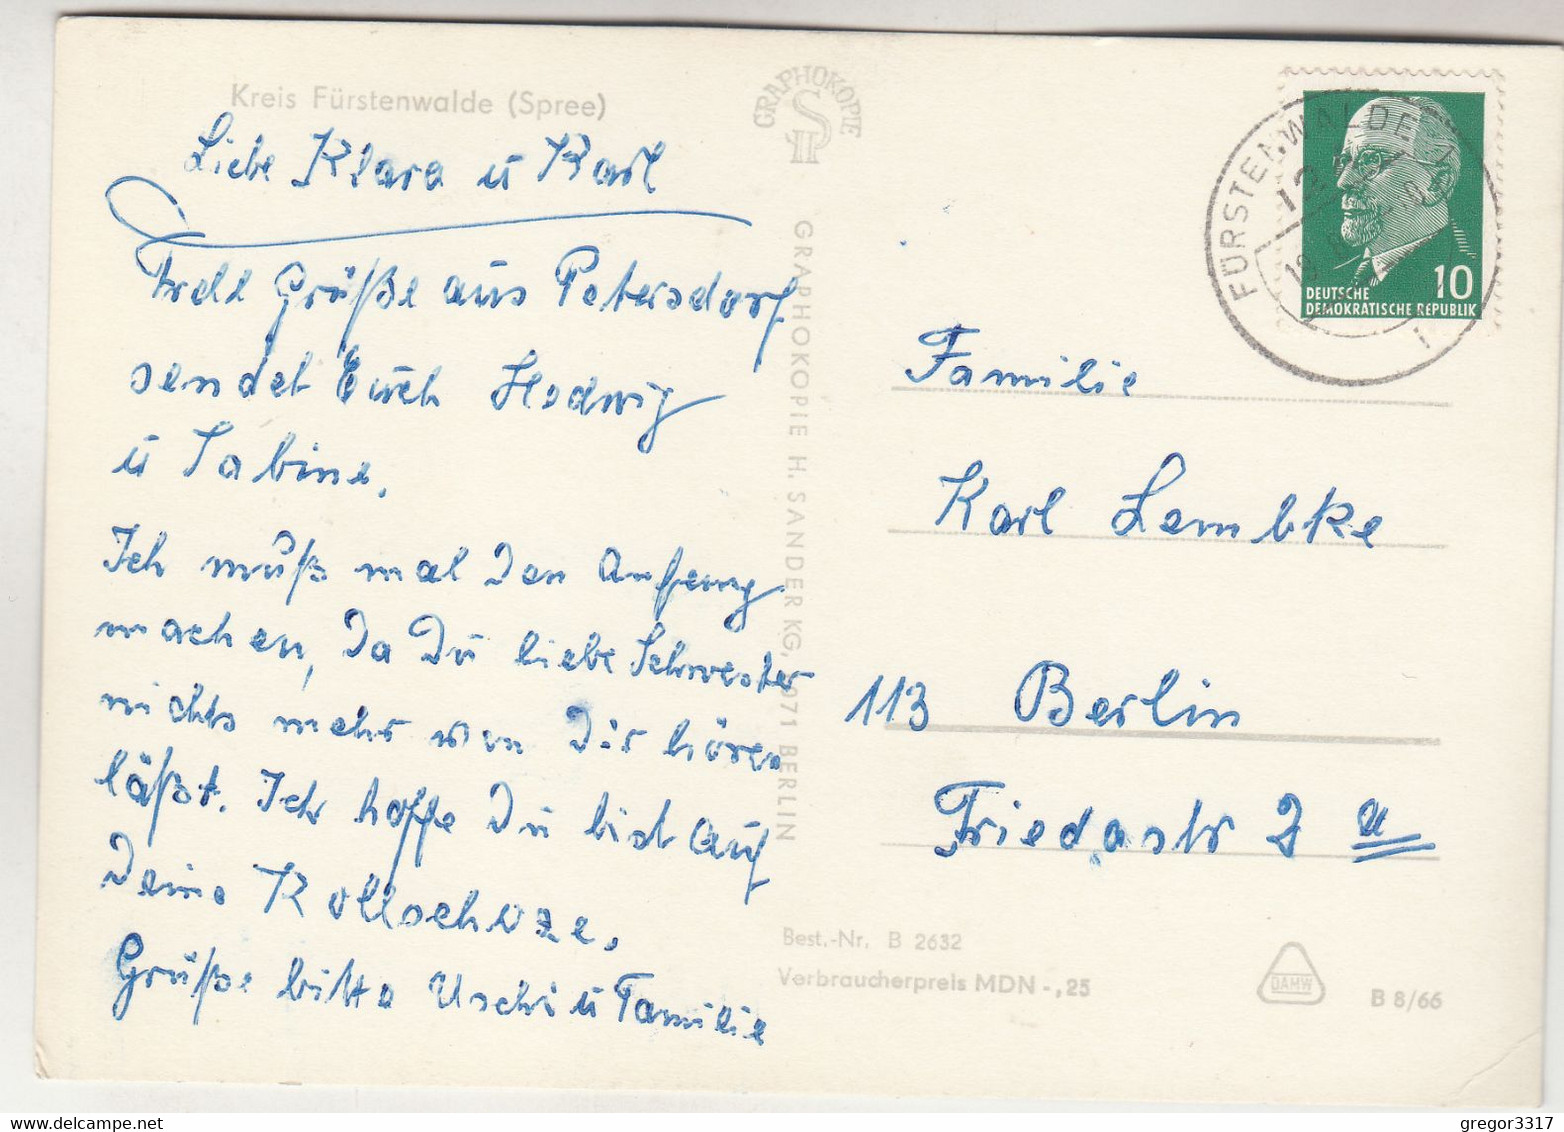 Kreis Fürstenwalde (Spree)
Liebe Klara u Karl
Viele Grüße aus Petersdorf
sendet Euch Hedwig
u Sabine.
Ich muß mal den Anfang
machen, da Du liebe Schwester
nichts mehr von Dir hören
läßt. Ich hoffe Du bist auf
Deine
Grüße bitte Uschi u Familie
GRAPHOKOPIE
GRAPHOKOPIE H. SANDER KG, 1071 BERLIN
FÜRSTENWALDE
10
DEUTSCHE
DEMOKRATISCHE REPUBLIK
Familie
Karl Lembke
113 Berlin
Friedastr 2 u
Best.-Nr. B 2632
Verbraucherpreis MDN -,25
DAMW
B 8/66
gregor3317